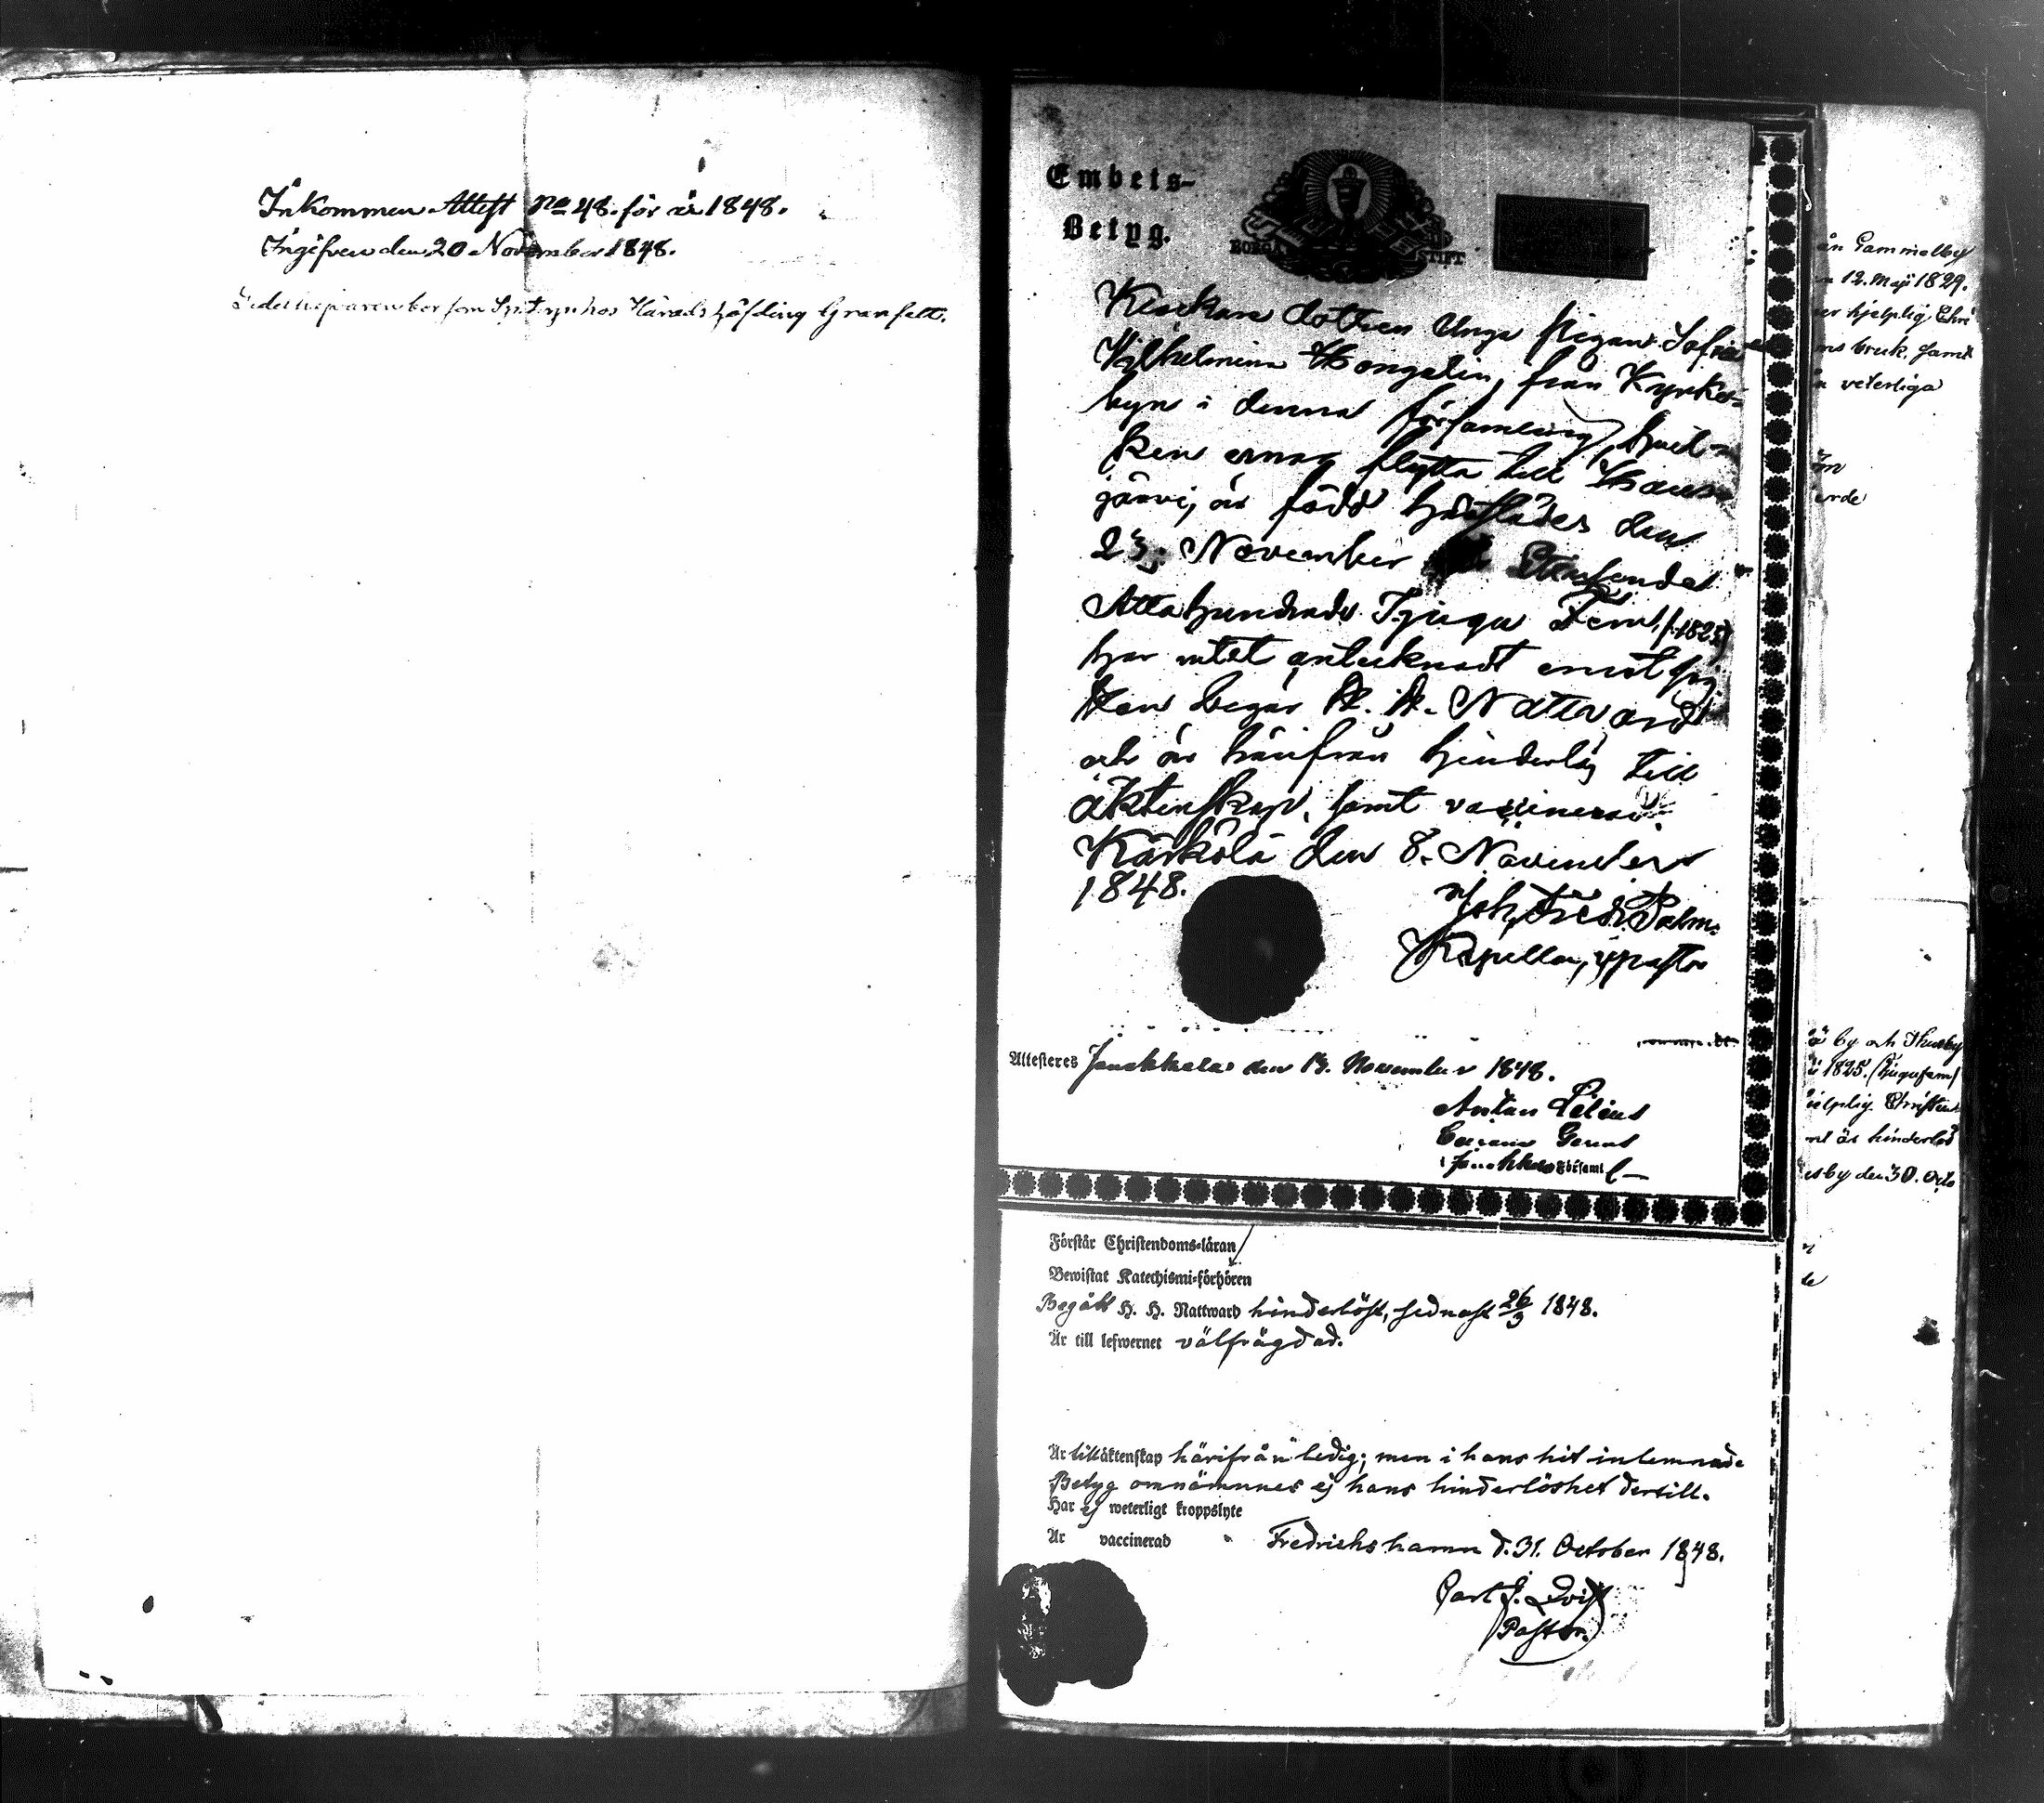 Inkommen Attest No 48. för år 1848.
Ingifven den 20 November 1848.
Häradshöfding Granfelt.
Embets-
Betyg.
BORGÅ STIFT
dottren Unga Pigan Sofia
Wilhelmina från Kyrko-
byn i denna församling, hvil-
ken ernar flytta till Haus-
järvi, är född den
23. November Ettusende
Attahundrade Tjugu Fem, (1825)
har intet antecknadt emot sig
kan begär H. H. Nattvard
och är härifrån hinderlös till
äktenskap, samt vaccinerad.
Kärkölä den 8. November
1848.
Joh. Fredr. Palm.
Kapellan, v. pastor
Attesteres Janakkala den 13. November 1848.
Anton Lilius
i Janakkala Församl
Förstår Christendoms-läran
Bewistat Katechismi-förhören
Begått H. H. Nattward hinderlöst, sednast 26/3 1848.
Är till lefwernet välfrägdad.
Är till äktenskap härifrån ledig; men i hans hit inlemnade
Betyg omnämnes ej hans hinderlöshet dertill.
Har ej weterligt kroppslyte
Är vaccinerad Fredrichshamn d. 31. October 1848.
Carl J. Qvist
(Pastor.)
ån Gammelby
12. Maji 1829.
er hjelplig Chri
ns bruk, samt
veterliga
by och Thusby
1825. (tjugufem)
jelplig Christen
är hinderlös
sby den 30. Octo